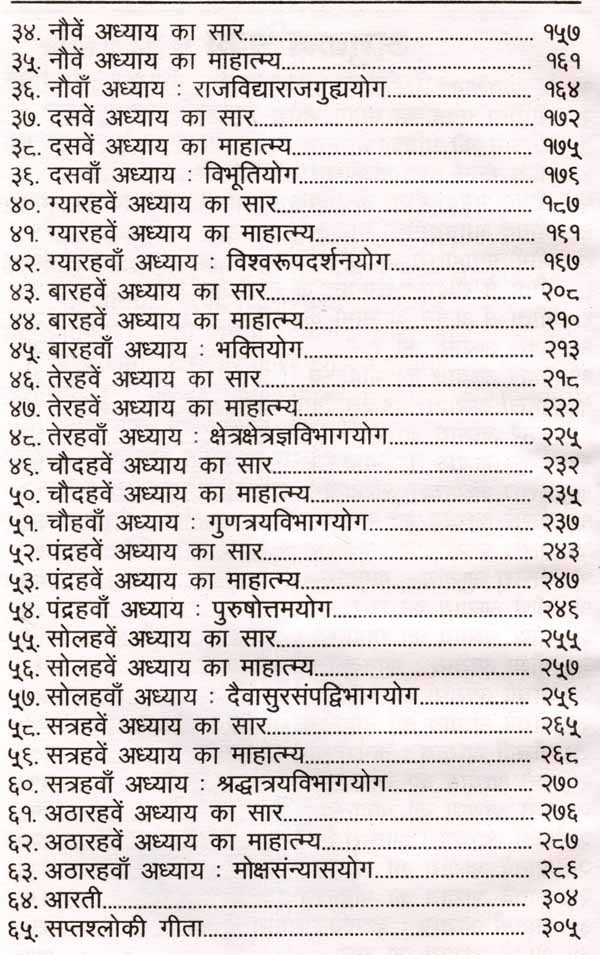 ३४. नौवें अध्याय का सार......१५७
३५. नौवें अध्याय का माहात्म्य......१६१
३६. नौवाँ अध्याय : राजविद्याराजगुह्ययोग......१६४
३७. दसवें अध्याय का सार......१७२
३८. दसवें अध्याय का माहात्म्य......१७५
३९. दसवाँ अध्याय : विभूतियोग......१७९
४०. ग्यारहवें अध्याय का सार......१८७
४१. ग्यारहवें अध्याय का माहात्म्य......१९१
४२. ग्यारहवाँ अध्याय : विश्वरूपदर्शनयोग......१९७
४३. बारहवें अध्याय का सार......२०८
४४. बारहवें अध्याय का माहात्म्य......२१०
४५. बारहवाँ अध्याय : भक्तियोग......२१३
४६. तेरहवें अध्याय का सार......२१८
४७. तेरहवें अध्याय का माहात्म्य......२२२
४८. तेरहवाँ अध्याय : क्षेत्रक्षेत्रज्ञविभागयोग......२२५
४९. चौदहवें अध्याय का सार......२३२
५०. चौदहवें अध्याय का माहात्म्य......२३५
५१. चौहवाँ अध्याय : गुणत्रयविभागयोग......२३७
५२. पंद्रहवें अध्याय का सार......२४३
५३. पंद्रहवें अध्याय का माहात्म्य......२४७
५४. पंद्रहवाँ अध्याय : पुरुषोत्तमयोग......२४९
५५. सोलहवें अध्याय का सार......२५५
५६. सोलहवें अध्याय का माहात्म्य......२५७
५७. सोलहवाँ अध्याय : दैवासुरसंपद्विभागयोग......२५९
५८. सत्रहवें अध्याय का सार......२६५
५९. सत्रहवें अध्याय का माहात्म्य......२६८
६०. सत्रहवाँ अध्याय : श्रद्धात्रयविभागयोग......२७०
६१. अठारहवें अध्याय का सार......२७६
६२. अठारहवें अध्याय का माहात्म्य......२८७
६३. अठारहवाँ अध्याय : मोक्षसंन्यासयोग......२८९
६४. आरती......३०४
६५. सप्तश्लोकी गीता......३०५